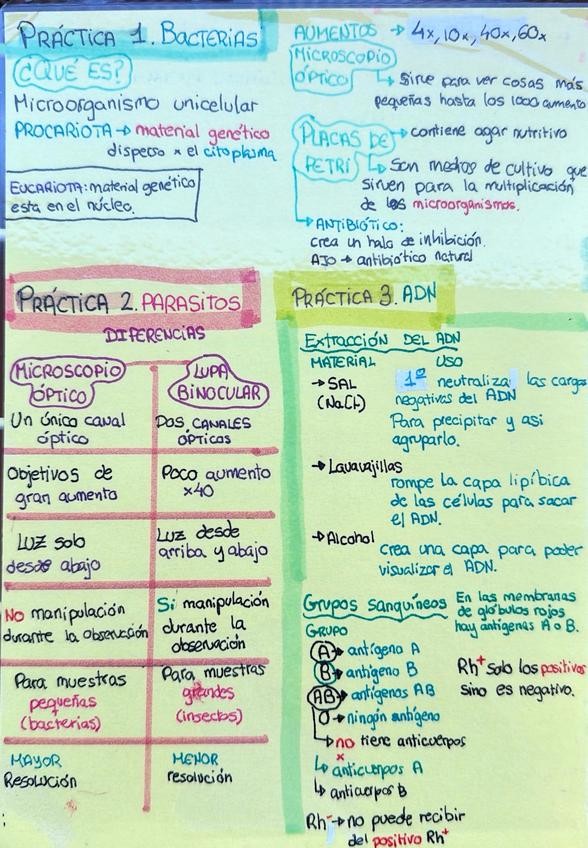 PRÁCTICA 1. BACTERIAS
¿QUÉ ES?
Microorganismo unicelular
PROCARIOTA → material genético
disperso x el citoplasma
EUCARIOTA: material genético
esta en el núcleo.
AUMENTOS → 4x, 10x, 40x, 60x
MICROSCOPIO
ÓPTICO → Sirve para ver cosas más
pequeñas hasta los 1000 aumento
PLACAS DE → contiene agar nutritivo
PETRI → Son medios de cultivo que
sirven para la multiplicación
de los microorganismos.
→ ANTIBIÓTICO:
crea un halo de inhibición.
AJO → antibiótico natural
PRÁCTICA 2. PARASITOS
DIFERENCIAS
MICROSCOPIO
ÓPTICO
LUPA
BINOCULAR
Un único canal
óptico
DOS CANALES
ÓPTICOS
Objetivos de
gran aumento
Poco aumento
x40
LUZ solo
desde abajo
LUZ desde
arriba y abajo
No manipulación
durante la observación
Si manipulación
durante la
observación
Para muestras
pequeñas
(bacterias)
Para muestras
grandes
(insectos)
MAYOR
Resolución
MENOR
resolución
PRÁCTICA 3. ADN
Extracción DEL ADN
MATERIAL USO
→ SAL 1º neutraliza las carga
(NaCl) negativas del ADN
Para precipitar y asi
agruparlo.
→ Lavavajillas
rompe la capa lipíbica
de las células para sacar
el ADN.
→ Alcohol
crea una capa para poder
visualizar el ADN.
Grupos sanguíneos
En las membranas
de glóbulos rojos
hay antígenas A o B.
GRUPO
A → antígeno A
B → antígeno B
AB → antígenos AB
O → ningún antígeno
→ no tiene anticuerpos
x
→ anticuerpos A
→ anticuerpos B
Rh⁺ solo los positivos
sino es negativo.
Rh⁻ → no puede recibir
del positivo Rh⁺